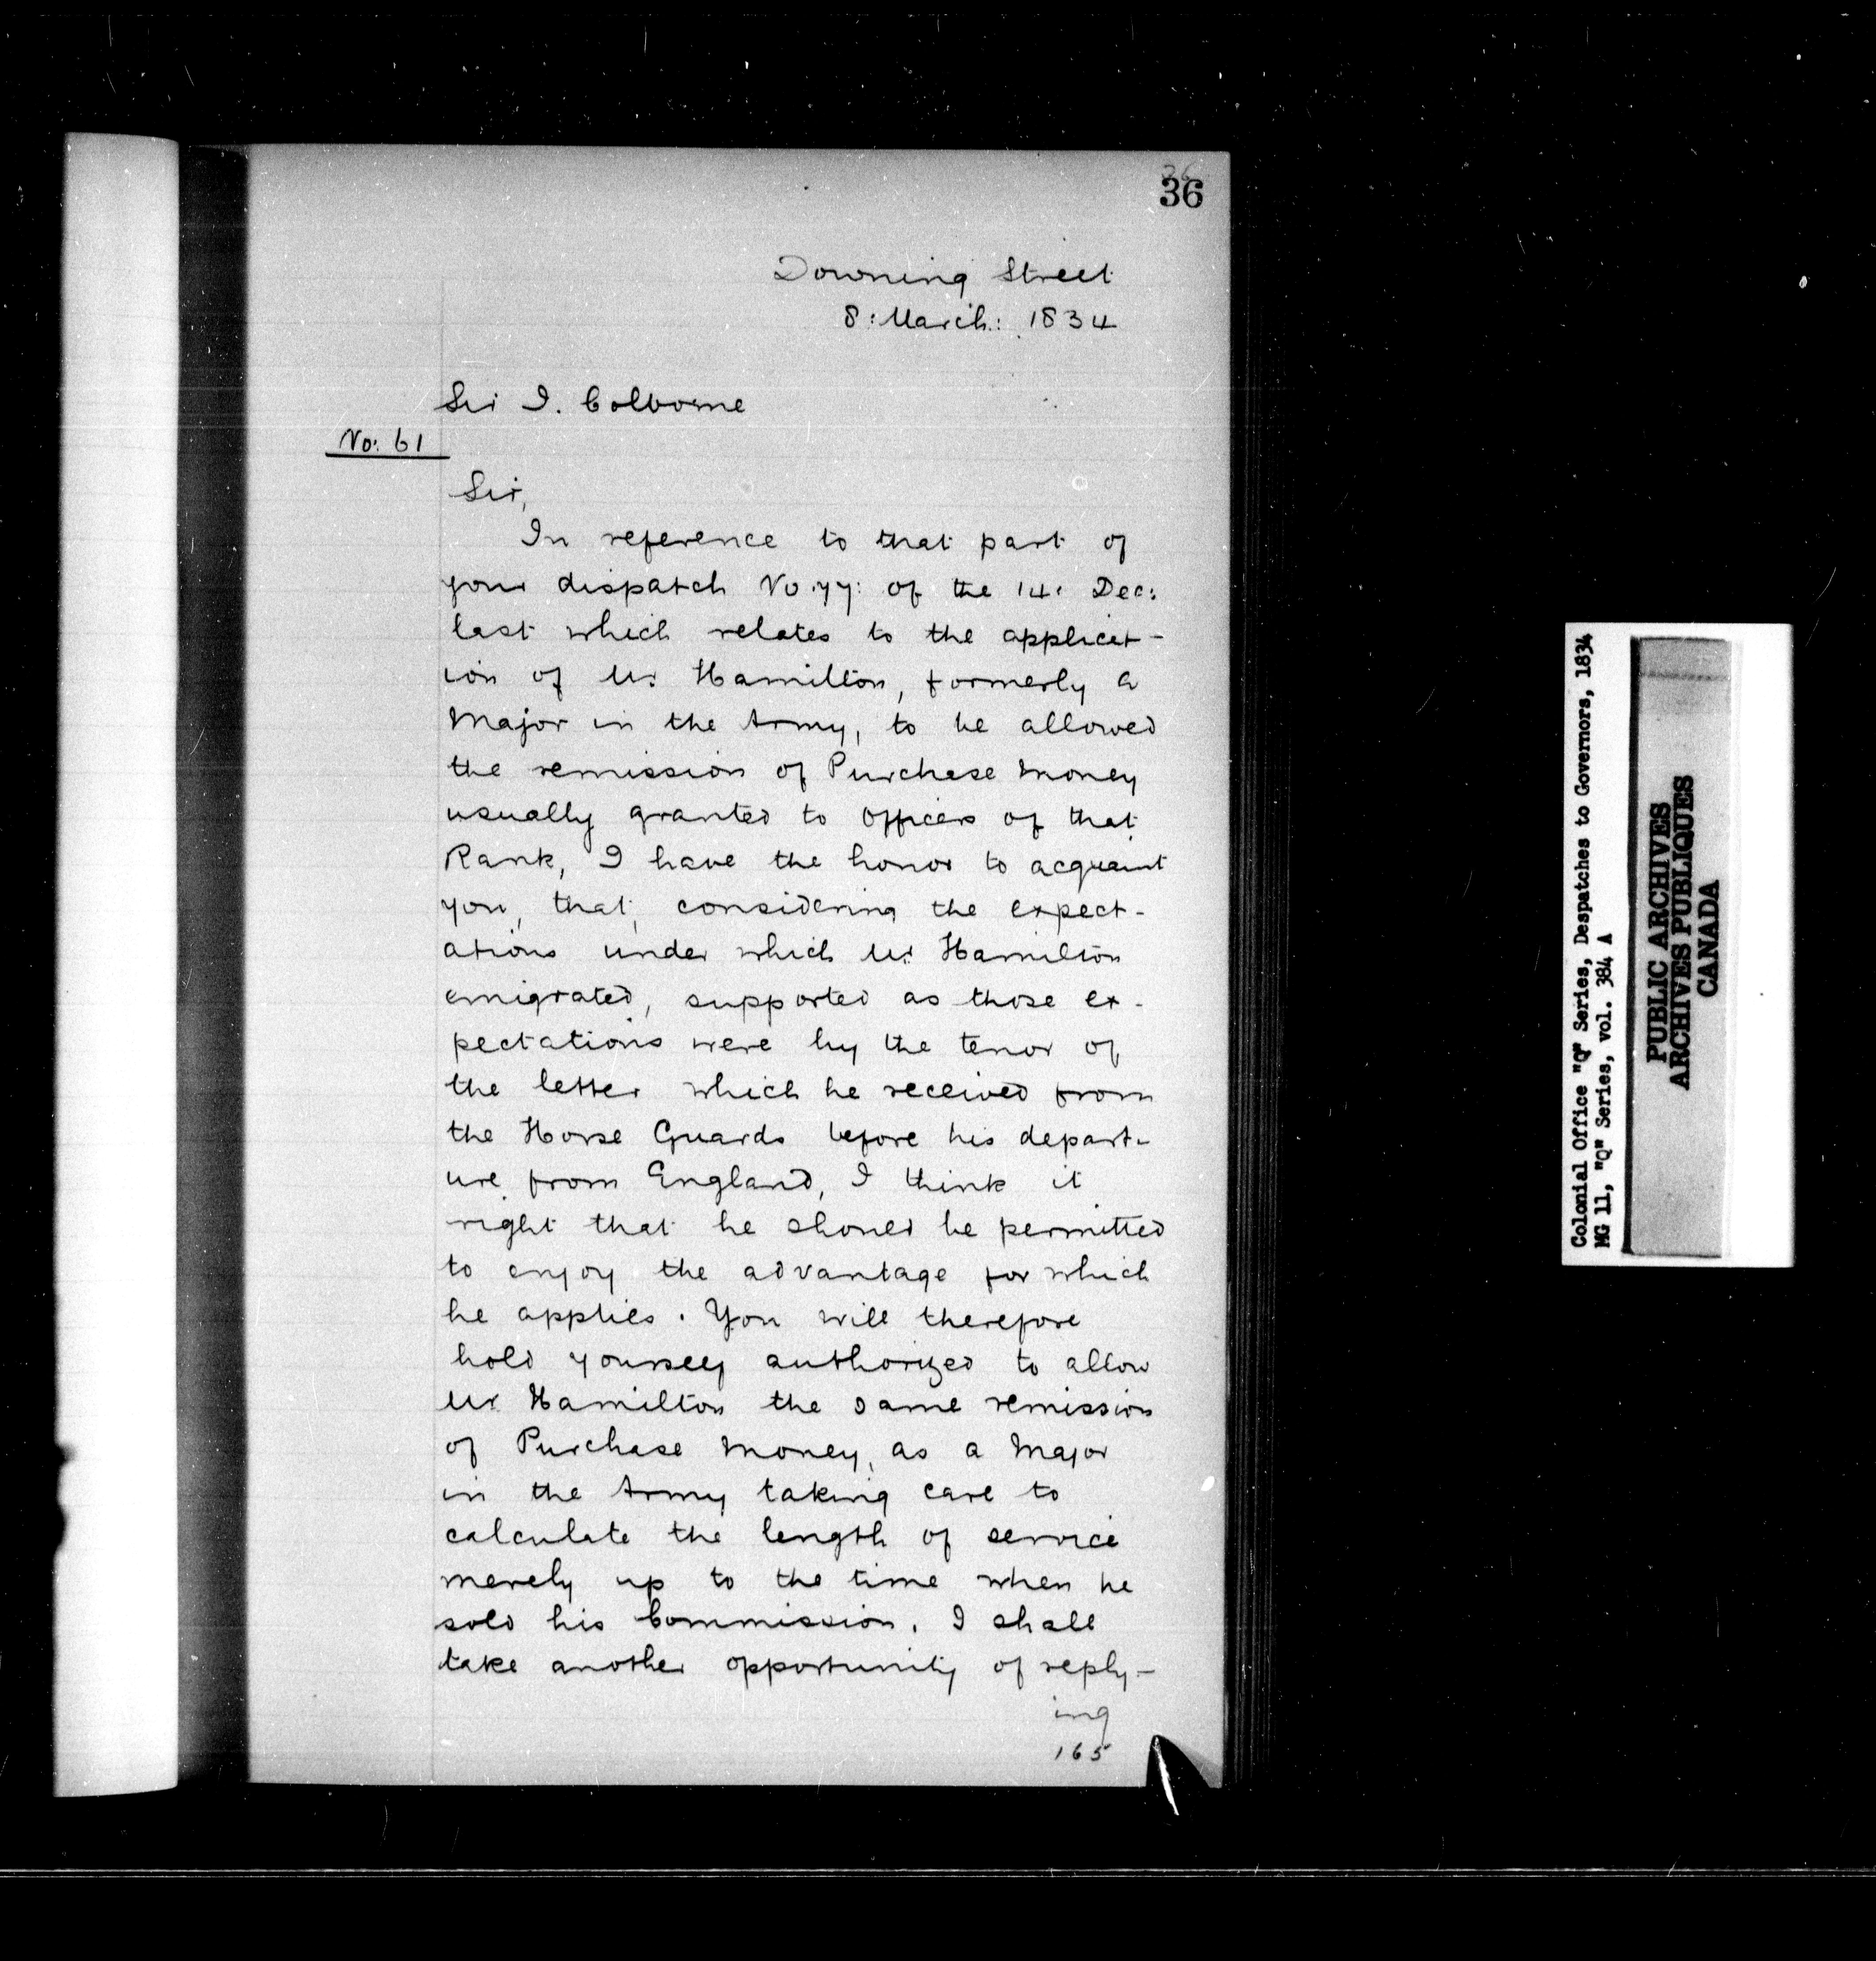 36
36
Downing Street
8: March: 1834
Sir J. Colborne
No: 61
Sir,
In reference to that part of
your dispatch No. 77: of the 14: Dec:
last which relates to the applicat-
ion of Mr. Hamilton, formerly a
Major in the Army, to be allowed
the remission of Purchase Money
usually granted to Officers of that
Rank, I have the honor to acquaint
you, that, considering the expect-
ations under which Mr. Hamilton
emigrated, supported as those ex-
pectations were by the tenor of
the letter which he received from
the Horse Guards before his depart-
ure from England, I think it
right that he should be permitted
to enjoy the advantage for which
he applies. You will therefore
hold yourself authorized to allow
Mr. Hamilton the same remission
of Purchase Money, as a Major
in the Army taking care to
calculate the length of service
merely up to the time when he
sold his Commission. I shall
take another opportunity of reply-
ing
165
Colonial Office "Q" Series, Despatches to Governors, 1834
MG 11, "Q" Series, vol. 384 A
PUBLIC ARCHIVES
ARCHIVES PUBLIQUES
CANADA